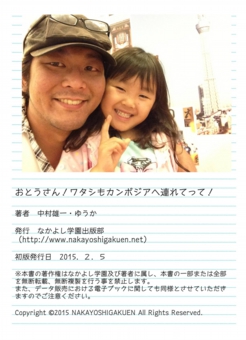 おとうさん！ワタシもカンボジアへ連れてって！
著者　中村雄一・ゆうか
発行　なかよし学園出版部
（http://www.nakayoshigakuen.net）
初版発行日　2015．2．5
※本書の著作権はなかよし学園及び著者に属し、本書の一部または全部
を無断転載、無断複製を行う事を禁止します。
また、データ販売における電子ブックに関しても同様とさせていただき
ますのでご注意ください。
Copyright ©2015 NAKAYOSHIGAKUEN All Rights Reserved.